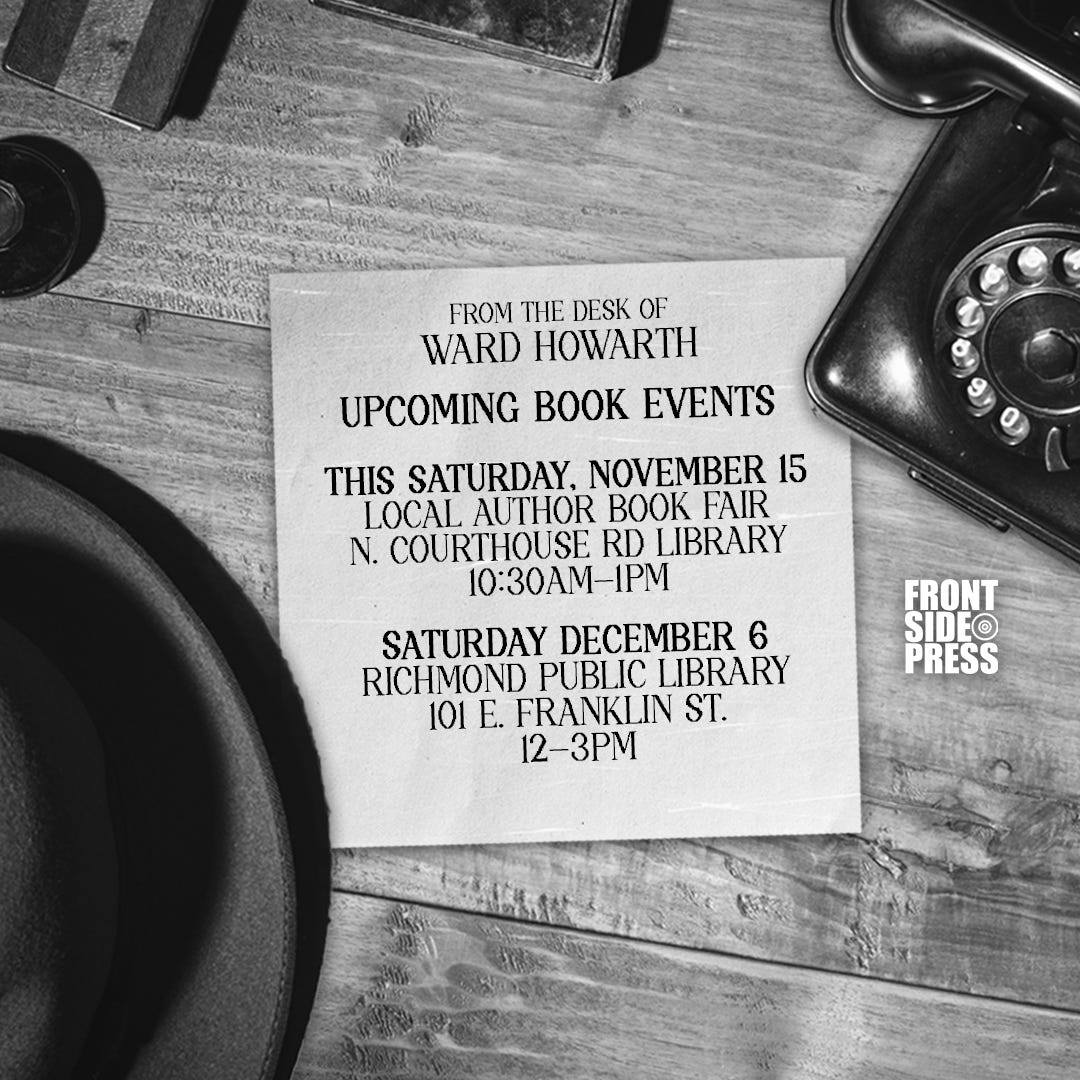 FROM THE DESK OF
WARD HOWARTH
UPCOMING BOOK EVENTS
THIS SATURDAY, NOVEMBER 15
LOCAL AUTHOR BOOK FAIR
N. COURTHOUSE RD LIBRARY
10:30AM–1PM
SATURDAY DECEMBER 6
RICHMOND PUBLIC LIBRARY
101 E. FRANKLIN ST.
12–3PM
FRONT
SIDE
PRESS
9
0